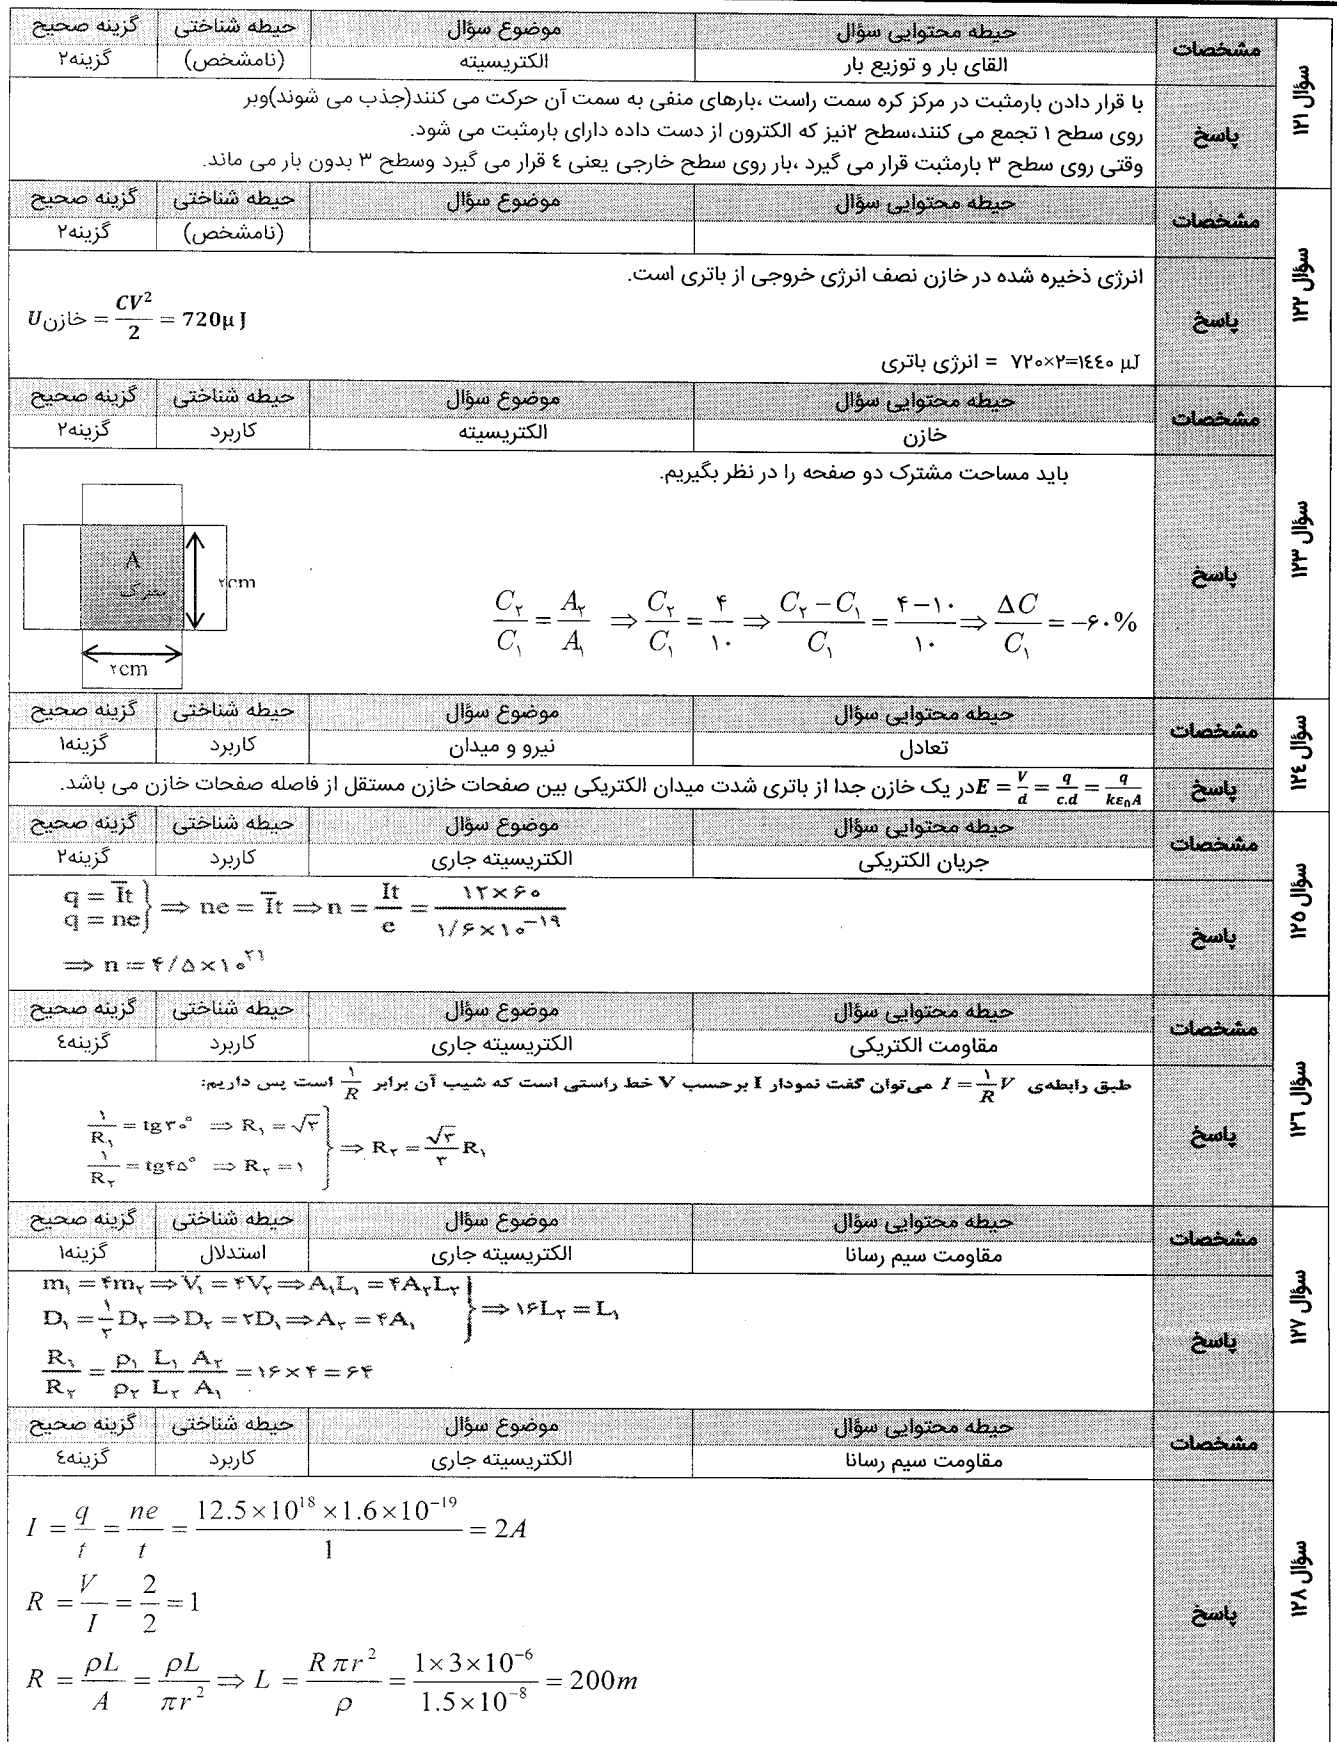 سؤال ۱۲۱
مشخصات
حیطه محتوایی سؤال	موضوع سؤال	حیطه شناختی	گزینه صحیح
القای بار و توزیع بار	الکتریسیته	(نامشخص)	گزینه۲
پاسخ
با قرار دادن بارمثبت در مرکز کره سمت راست ،بارهای منفی به سمت آن حرکت می کنند(جذب می شوند)وبر
روی سطح ۱ تجمع می کنند،سطح ۲نیز که الکترون از دست داده دارای بارمثبت می شود.
وقتی روی سطح ۳ بارمثبت قرار می گیرد ،بار روی سطح خارجی یعنی ٤ قرار می گیرد وسطح ۳ بدون بار می ماند.
سؤال ۱۲۲
مشخصات
حیطه محتوایی سؤال	موضوع سؤال	حیطه شناختی	گزینه صحیح
(نامشخص)	گزینه۲
پاسخ
انرژی ذخیره شده در خازن نصف انرژی خروجی از باتری است.
U خازن = CV²/2 = 720μ J
انرژی باتری = ۷۲۰×۲=۱٤٤۰ μJ
سؤال ۱۲۳
مشخصات
حیطه محتوایی سؤال	موضوع سؤال	حیطه شناختی	گزینه صحیح
خازن	الکتریسیته	کاربرد	گزینه۲
پاسخ
باید مساحت مشترک دو صفحه را در نظر بگیریم.
A
مشترک
۲cm
۲cm
C₂/C₁ = A₂/A₁ ⇒ C₂/C₁ = ۴/۱۰ ⇒ (C₂−C₁)/C₁ = (۴−۱۰)/۱۰ ⇒ ΔC/C₁ = −۶۰%
سؤال ۱۲٤
مشخصات
حیطه محتوایی سؤال	موضوع سؤال	حیطه شناختی	گزینه صحیح
تعادل	نیرو و میدان	کاربرد	گزینه۱
پاسخ
E = V/d = q/c.d = q/kε₀A در یک خازن جدا از باتری شدت میدان الکتریکی بین صفحات خازن مستقل از فاصله صفحات خازن می باشد.
سؤال ۱۲۵
مشخصات
حیطه محتوایی سؤال	موضوع سؤال	حیطه شناختی	گزینه صحیح
جریان الکتریکی	الکتریسیته جاری	کاربرد	گزینه۲
پاسخ
q = I̅t
q = ne } ⇒ ne = I̅t ⇒ n = It/e = ۱۲×۶۰/۱/۶×۱۰⁻¹⁹
⇒ n = ۴/۵×۱۰²¹
سؤال ۱۲٦
مشخصات
حیطه محتوایی سؤال	موضوع سؤال	حیطه شناختی	گزینه صحیح
مقاومت الکتریکی	الکتریسیته جاری	کاربرد	گزینه٤
پاسخ
طبق رابطه‌ی I = ۱/R V می‌توان گفت نمودار I برحسب V خط راستی است که شیب آن برابر ۱/R است پس داریم:
۱/R₁ = tg۳۰° ⇒ R₁ = √۳
۱/R₂ = tg۴۵° ⇒ R₂ = ۱ } ⇒ R₂ = √۳/۳ R₁
سؤال ۱۲۷
مشخصات
حیطه محتوایی سؤال	موضوع سؤال	حیطه شناختی	گزینه صحیح
مقاومت سیم رسانا	الکتریسیته جاری	استدلال	گزینه۱
پاسخ
m₁ = ۴m₂ ⇒ V₁ = ۴V₂ ⇒ A₁L₁ = ۴A₂L₂
D₁ = ۱/۲ D₂ ⇒ D₂ = ۲D₁ ⇒ A₂ = ۴A₁ } ⇒ ۱۶L₂ = L₁
R₁/R₂ = ρ₁/ρ₂ L₁/L₂ A₂/A₁ = ۱۶×۴ = ۶۴
سؤال ۱۲۸
مشخصات
حیطه محتوایی سؤال	موضوع سؤال	حیطه شناختی	گزینه صحیح
مقاومت سیم رسانا	الکتریسیته جاری	کاربرد	گزینه٤
پاسخ
I = q/t = ne/t = 12.5×10¹⁸×1.6×10⁻¹⁹/1 = 2A
R = V/I = 2/2 = 1
R = ρL/A = ρL/πr² ⇒ L = Rπr²/ρ = 1×3×10⁻⁶/1.5×10⁻⁸ = 200m